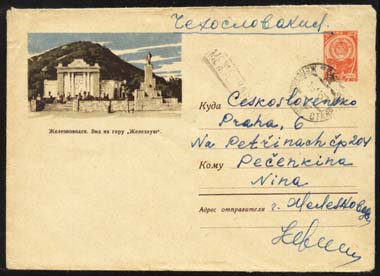 Чехословакия.
Куда Československo
Praha, 6
Na Petřinach čp 204
Железноводск. Вид на гору „Железную“.
Кому Pečenkina
Nina
Адрес отправителя г. Железновод